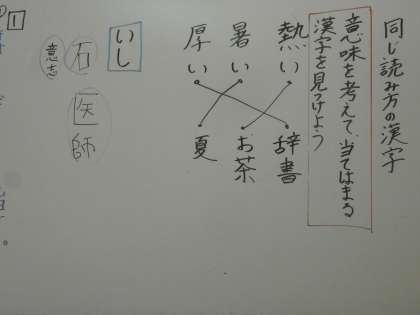 同じ読み方の漢字
意味を考えて、当てはまる
漢字を見つけよう
熱い
暑い
厚い
辞書
お茶
夏
いし
石
医師
意志
1